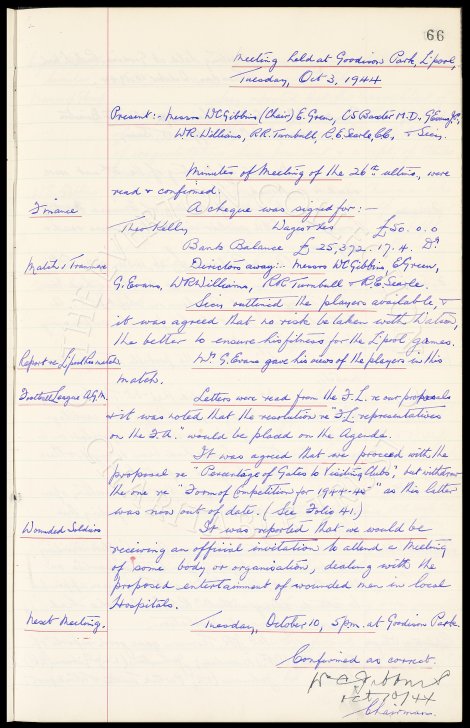 66
Meeting held at Goodison Park, L'pool,
Tuesday, Oct 3, 1944
Present:- Messrs W C Gibbins (Chair) E. Green, C S Baxter M.D., G Evans J.P.,
W.R. Williams, R.R. Turnbull, R.E. Searle, & Secy.
Minutes of Meeting of the 26th ultimo, were
read & confirmed.
Finance
A cheque was signed for:-
Theo Kelly Wages & es £50. 0. 0
Bank Balance £25,372. 17. 4. Dr
Match v Tranmere
Directors away:- Messrs W C Gibbins, E Green,
G. Evans, W R Williams, R R Turnbull & R.E. Searle.
Secy outlined the players available &
it was agreed that no risk be taken with Watson,
the better to ensure his fitness for the L'pool games.
Report re L'pool Res match
Mr. G. Evans gave his views of the players in this
match.
Football League A.G.M.
Letters were read from the F.L. re our proposals
& it was noted that the resolution re "F.L. representatives
on the F.A." would be placed on the Agenda.
It was agreed that we proceed with the
proposal re "Percentage of Gates to Visiting Clubs", but withdraw
the one re "Form of Competition for 1944-45" as this latter
was now out of date. (See Folio 41.)
Wounded Soldiers
It was reported that we would be
receiving an official invitation to attend a Meeting
of some body or organisation, dealing with the
proposed entertainment of wounded men in local
Hospitals.
Next Meeting.
Tuesday, October 10, 5pm. at Goodison Park.
Confirmed as correct.
Wm C Gibbins
Oct 10/44
Chairman.